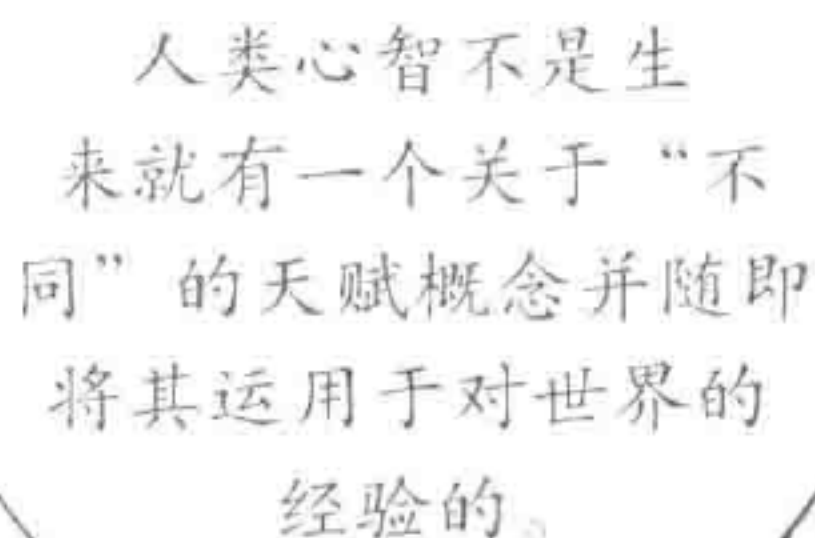 人类心智不是生
来就有一个关于“不
同”的天赋概念并随即
将其运用于对世界的
经验的。